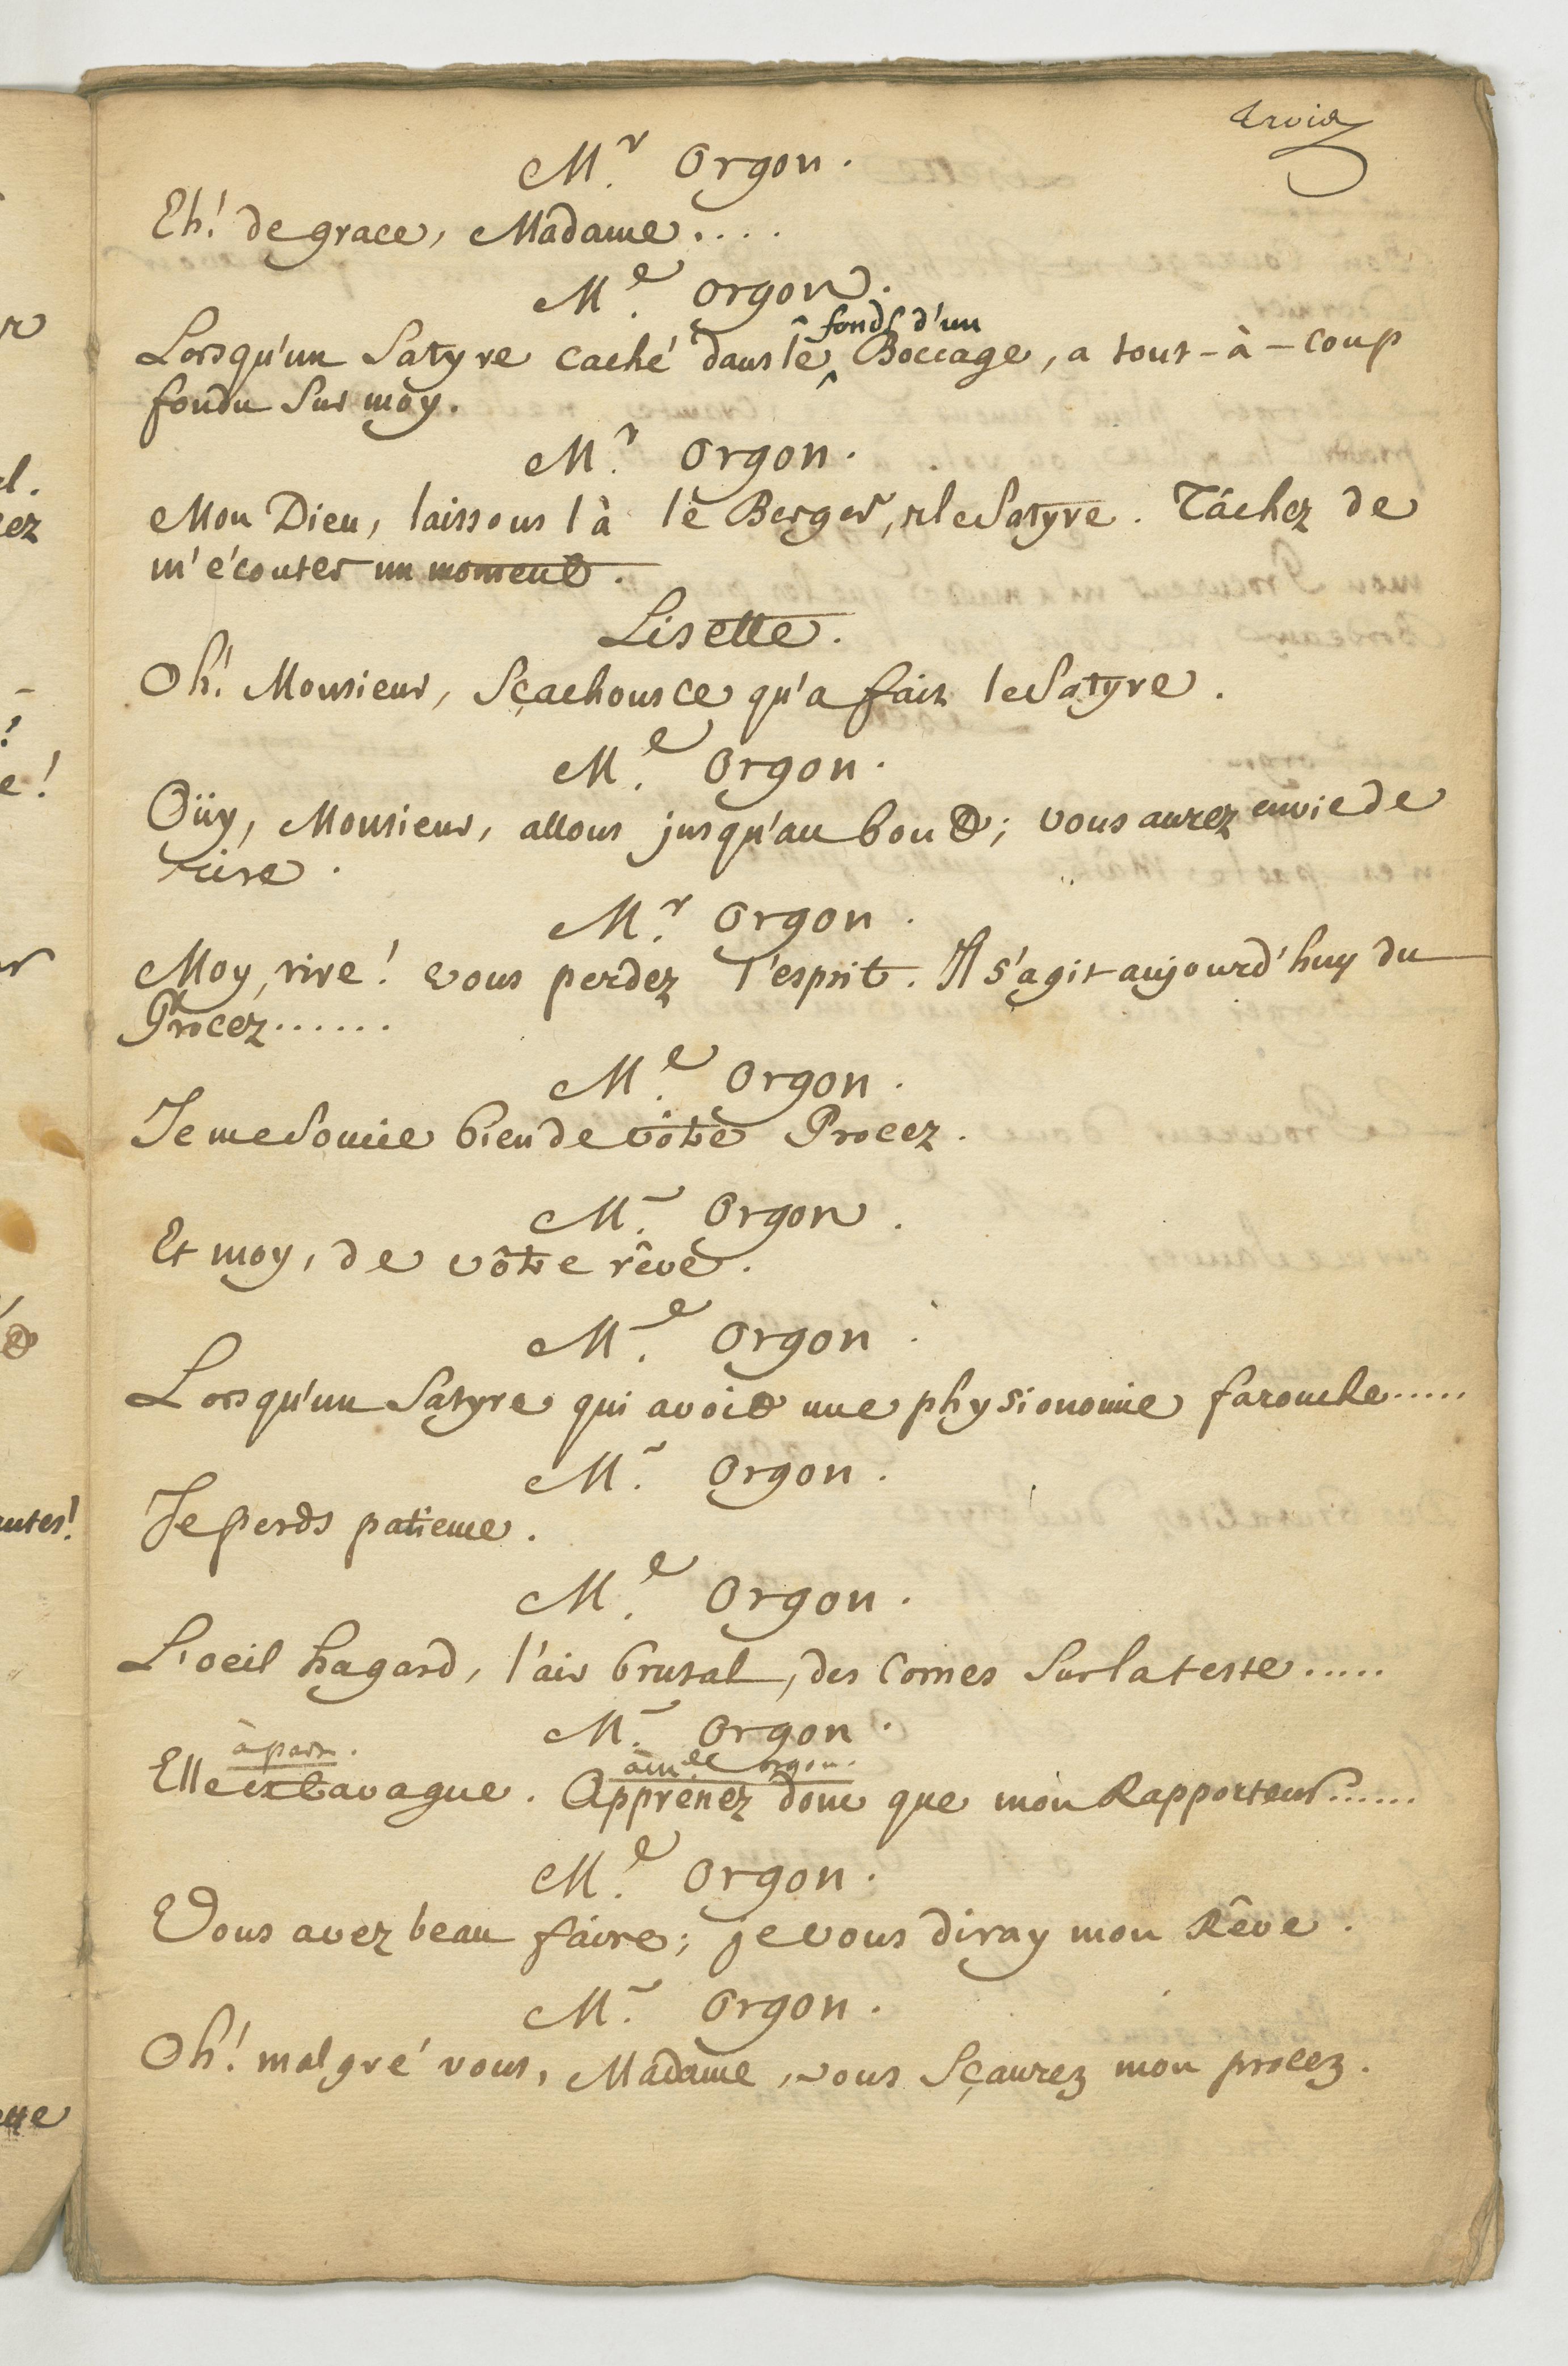 trois
Mr. Orgon.
Eh! de grace, Madame....
Me. Orgon.
fonds d'un
Lorsqu'un Satyre caché dans le Boccage, a tout-à-coup
fondu sur moy.
Mr. Orgon.
Mon Dieu, laissons là le Berger, et le Satyre. Tâchez de
m'écouter un moment.
Lisette.
Oh! Monsieur, Sçachons ce qu'a fait le Satyre.
Me. Orgon.
Oüy, Monsieur, allons jusqu'au bout; vous aurez envie de
rire.
Mr. Orgon.
Moy, rire! vous perdez l'esprit. Il s'agit aujourd'huy du
Procez......
Me. Orgon.
Je me Soucie bien de vôtre Procez.
Mr. Orgon.
Et moy, de vôtre rêve.
Me. Orgon.
Lorsqu'un Satyre qui avoit une physionomie farouche.....
Mr. Orgon.
Je perds patience.
Me. Orgon.
L'oeil hagard, l'air brutal, des Cornes Sur la teste.....
Mr. Orgon.
à part. à Me. Orgon.
Elle extravague. Apprenez donc que mon Rapporteur......
Me. Orgon.
Vous avez beau faire; je vous diray mon Rêve.
Mr. Orgon.
Oh! malgré vous, Madame, vous Sçaurez mon procez.